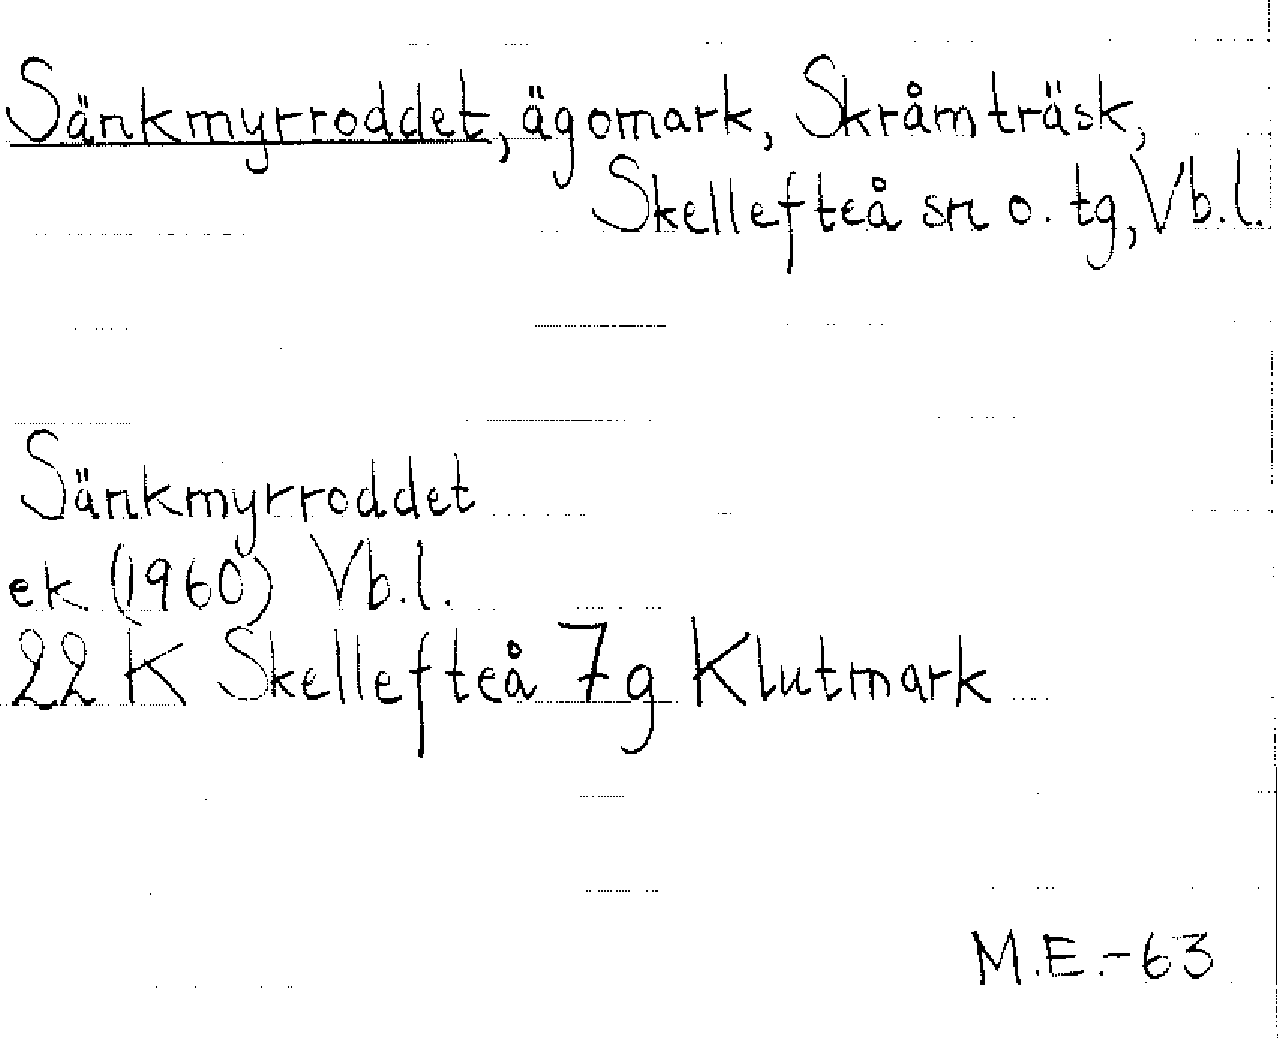 Sänkmyrroddet, ägomark, Skråmträsk,
Skellefteå sn o. tg, Vb.l.
Sänkmyrroddet
ek (1960) Vb.l.
22 K Skellefteå 7g Klutmark
M.E.-63